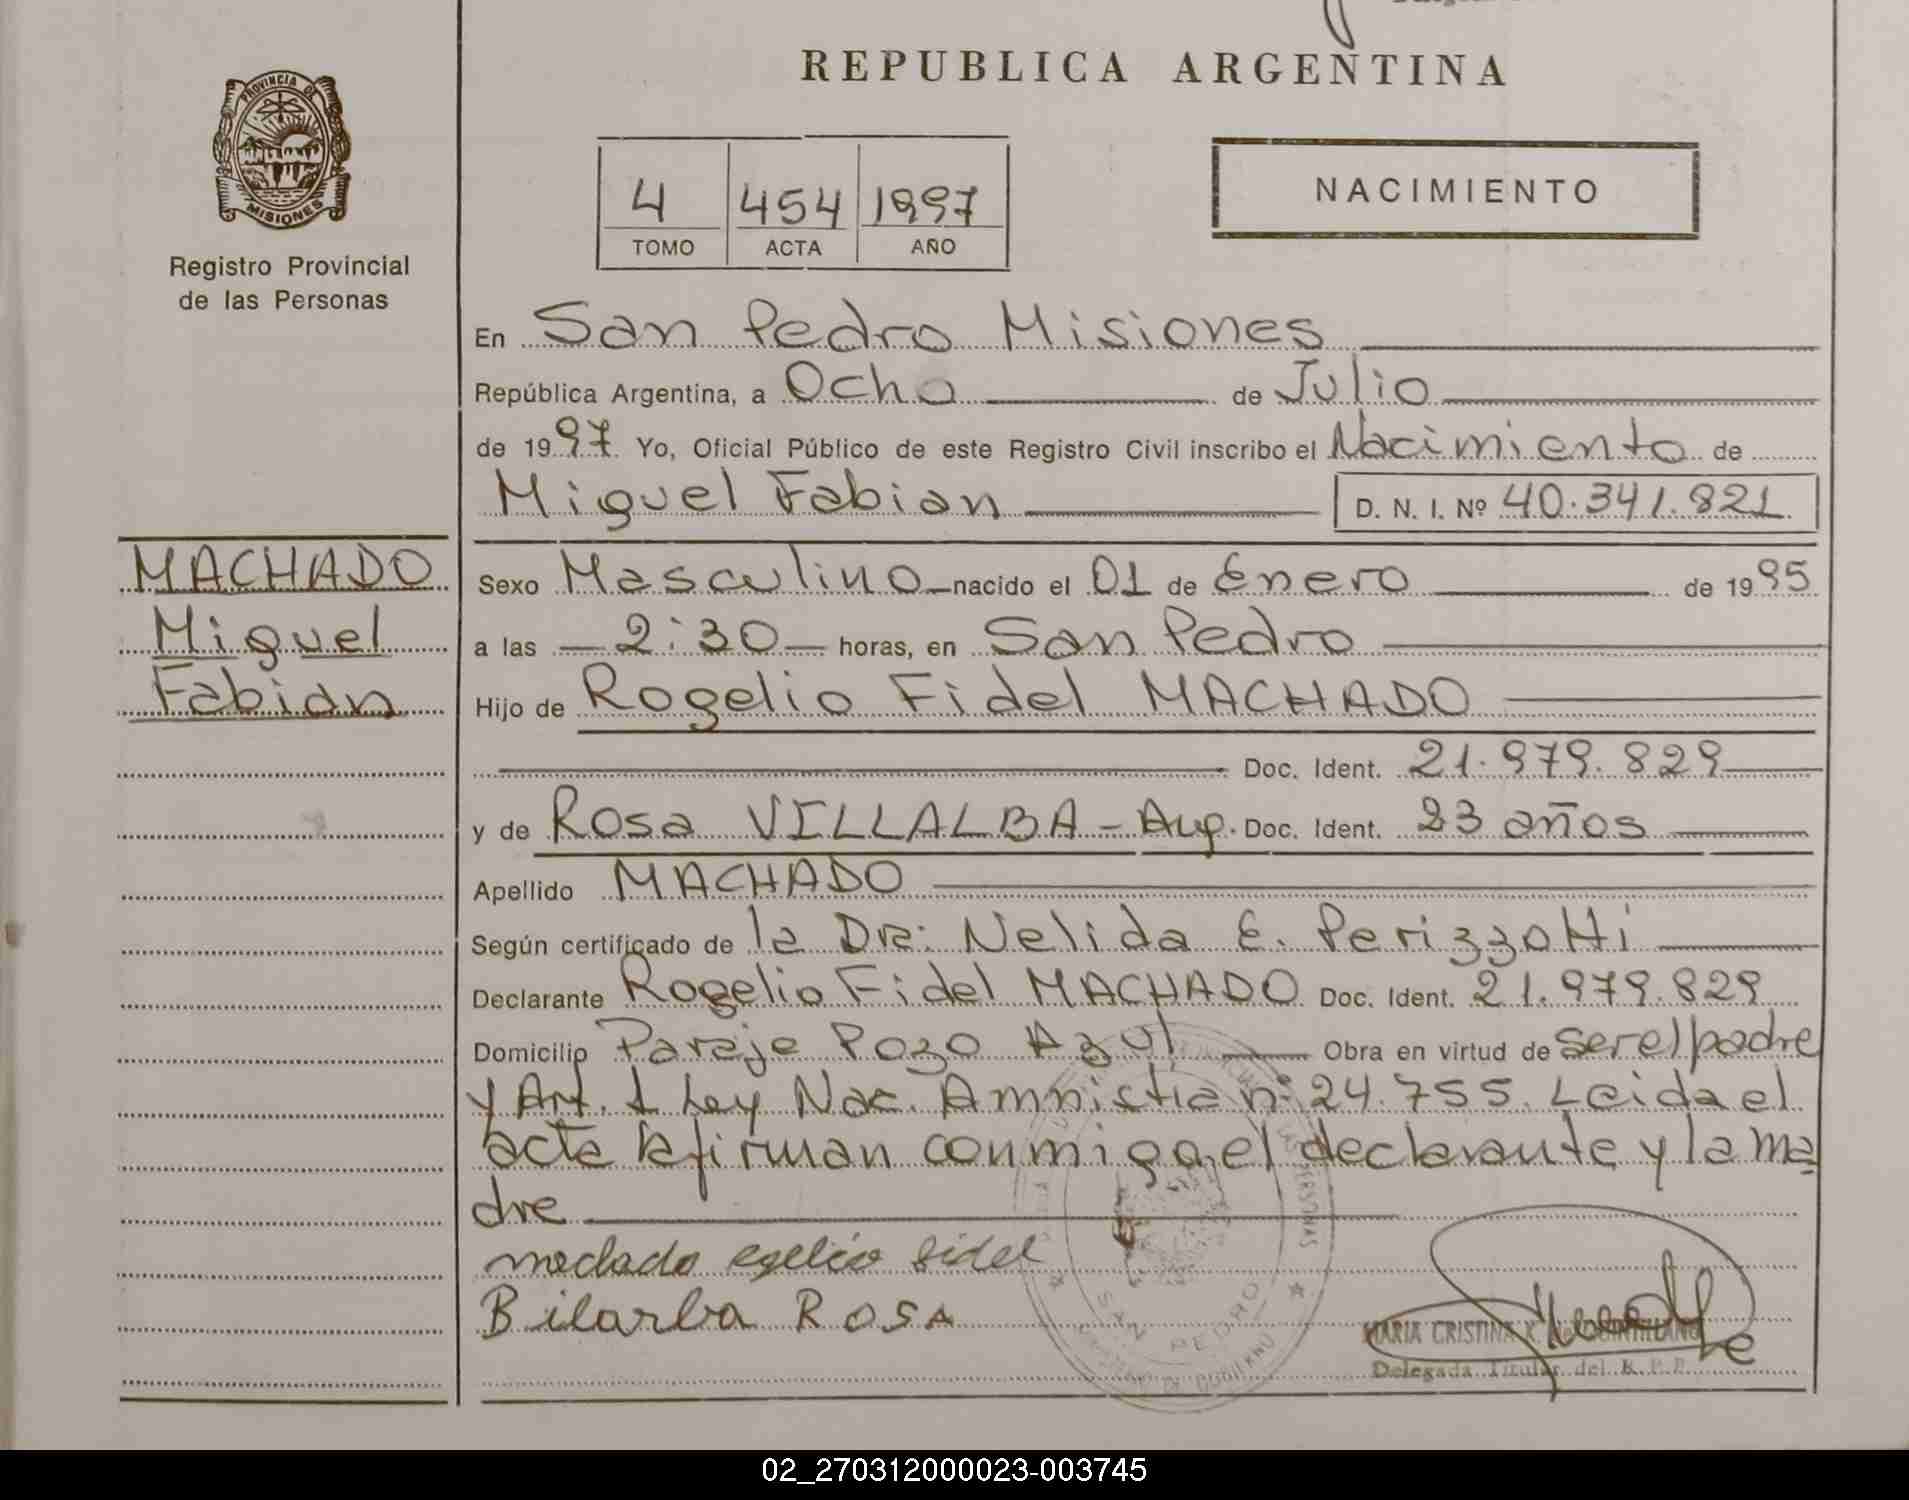 REPUBLICA ARGENTINA
PROVINCIA DE
MISIONES
Registro Provincial
de las Personas
4 454 1997
TOMO ACTA AÑO
NACIMIENTO
En San Pedro Misiones
República Argentina, a Ocho de Julio
de 1997 Yo, Oficial Público de este Registro Civil inscribo el Nacimiento de
Miguel Fabian D. N. I. Nº 40.341.821
MACHADO
Miguel
Fabian
Sexo Masculino nacido el 01 de Enero de 1995
a las 2:30 horas, en San Pedro
Hijo de Rogelio Fidel MACHADO
Doc. Ident. 21.979.829
y de Rosa VILLALBA - Arg. Doc. Ident. 23 años
Apellido MACHADO
Según certificado de la Dra: Nelida E. Perizzotti
Declarante Rogelio Fidel MACHADO Doc. Ident. 21.979.829
Domicilio Paraje Pozo Azul Obra en virtud de ser el padre
y Art. 1 Ley Nac. Amnistia nº 24.755. Leida el
acta la firman conmigo, el declarante y la ma
dre
machado egelio fidel
Bilarba ROSA
SAN PEDRO
MARIA CRISTINA
Delegada Titular del R. P. P.
02_270312000023-003745